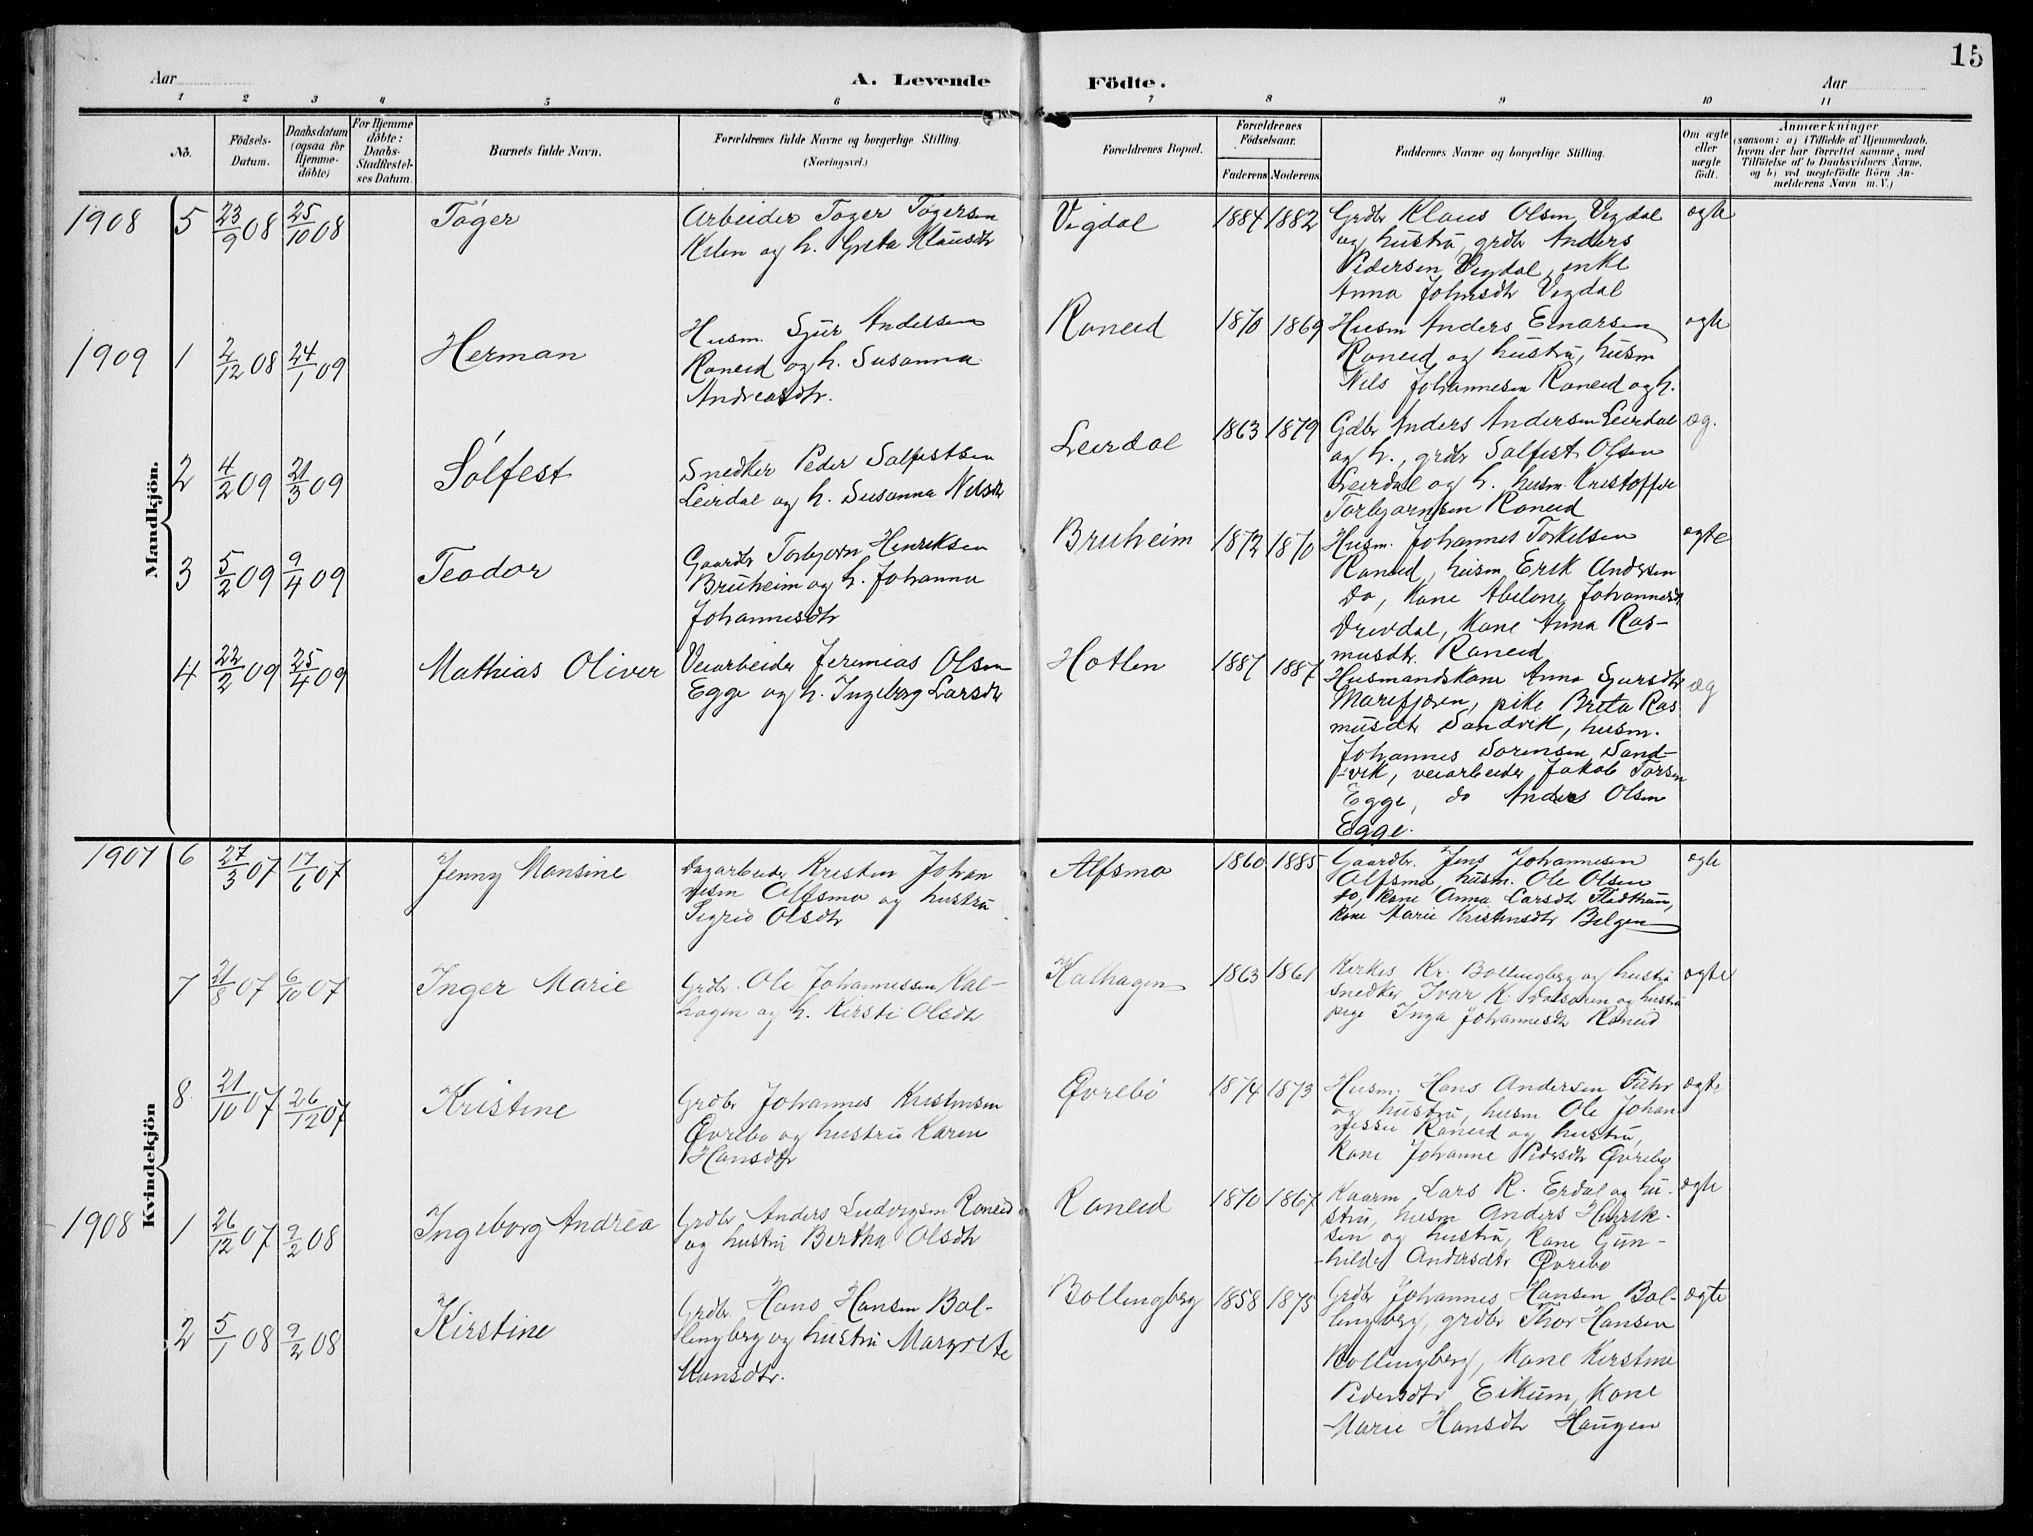 15
Aar
A. Levende
Födte.
Aar
1 2 3 4 5 6 7 8 9 10 11
No.
Födsels-
Datum.
Daabsdatum
(ogsaa for
Hjemme-
döbte)
For Hjemme
döbte:
Daabs-
Stadfæstel-
ses Datum.
Barnets fulde Navn.
Forældrenes fulde Navne og borgerlige Stilling.
(Næringsvei.)
Forældrenes Bopæl.
Forældrenes
Födselsaar.
Faderens Moderens
Faddernes Navne og borgerlige Stilling.
Om ægte
eller
uægte
födt.
Anmærkninger
(saasom: a) i Tilfælde af Hjemmedaab,
hvem der har forrettet samme, med
Tilföielse af to Daabsvidners Navne,
og b) ved uægtefödte Börn An-
melderens Navn m. V.)
Mandkjön.
1908 5 23/9 08 25/10 08 Tøger
Arbeider Tøger Tøgersen
Kilen og h. Greta Klausdt
Vigdal 1884 1882
Grdbr Klaus Olsen Vigdal
og hustru, grdbr Anders
Pedersen Vigdal, enke
Anna Johnsdtr Vigdal
ægte
1909 1 2/12 08 24/1 09 Herman
Husm. Sjur Andersen
Roneid og h. Susanna
Andreasdtr.
Roneid 1870 1869
Husm Anders Einarsen
Roneid og hustru, husm
Nils Johannesen Roneid og h.
ægte
2 4/2 09 21/3 09 Sølfest
Snedker Peder Salfestsen
Leirdal og h. Susanna Nilsdt
Leirdal 1863 1879
Gdbr Anders Andersen Leirdal
og h., grdbr Salfest Olsen
Leirdal og h. husm. Kristoffer
Torbjørnsen Roneid
æg.
3 5/2 09 9/4 09 Teodor
Gaardbr Torbjørn Henriksen
Bruheim og h. Johanna
Johannesdtr
Bruheim 1872 1870
Husm. Johannes Torkelsen
Roneid, husm Erik Andersen
Do, kone Abelone Johannesdt
Drevdal, kone Anna Ras-
musdtr. Roneid
ægte
4 22/2 09 25/4 09 Mathias Oliver
Veiarbeider Jeremias Olsen
Egge og h. Ingeborg Larsdt
Hotlen 1887 1887
Husmandskone Anna Sjursdtr
Marefjøren, pike Brita Ras
musdtr Sandvik, husm.
Johannes Sørensen Sand-
vik, veiarbeider Jakob Torsen
Egge, do Anders Olsen
Egge.
æg
Kvindekjön
1907 6 27/3 07 17/6 07 Jenny Monsine
Dagarbeider Kristen Johan
nesen Alfsmo og hustru
Sigrid Olsdtr
Alfsmo 1860 1885
Gaardbr. Jens Johannesen
Alfsmo, husm. Ole Olsen
do, kone Anna Larsdt Flathun,
kone Marie Kristensdtr Bolgen
ægte
7 21/8 07 6/10 07 Inger Marie
Grdbr. Ole Johannessen Kal-
hagen og h. Kirsti Olsdtr
Kalhagen 1863 1861
Kirkes Kr. Bollingberg og hustru
snedker Ivar K. Dalsøren og hustru
pige Inga Johannesdt Roneid
ægte
8. 21/10 07 26/12 07 Kristine
Grdbr Johannes Kristensen
Øvrebø og hustru Karen
Hansdtr
Øvrebö 1874 1873
Husm. Hans Andersen Fuhr
og hustru, husm Ole Johan
nessen Roneid og hustru,
Kone Johanne Pedersdtr Øvrebø
ægte
1908 1 26/12 07 9/2 08 Ingeborg Andrea
Grdbr Anders Ludvigsen Roneid
og hustru Bertha Olsdtr
Roneid 1870 1867
Kaarm Lars R. Erdal og hu-
stru, husm Anders Henrik-
sen og hustru, kone Gun-
hilde Andersdtr Øvrebø
ægte
2 5/1 08 9/2 08 Kirstine
Grdbr. Hans Hansen Bol-
lingberg og hustru Margrete
Monsdtr.
Bollingberg 1858 1875
Grdbr Johannes Hansen Bol-
lingberg, grdbr Thor Hansen
Bollingberg, kone Kirstine
Pedersdtr Eikum, kone
Marie Hansdtr Haugen
ægte